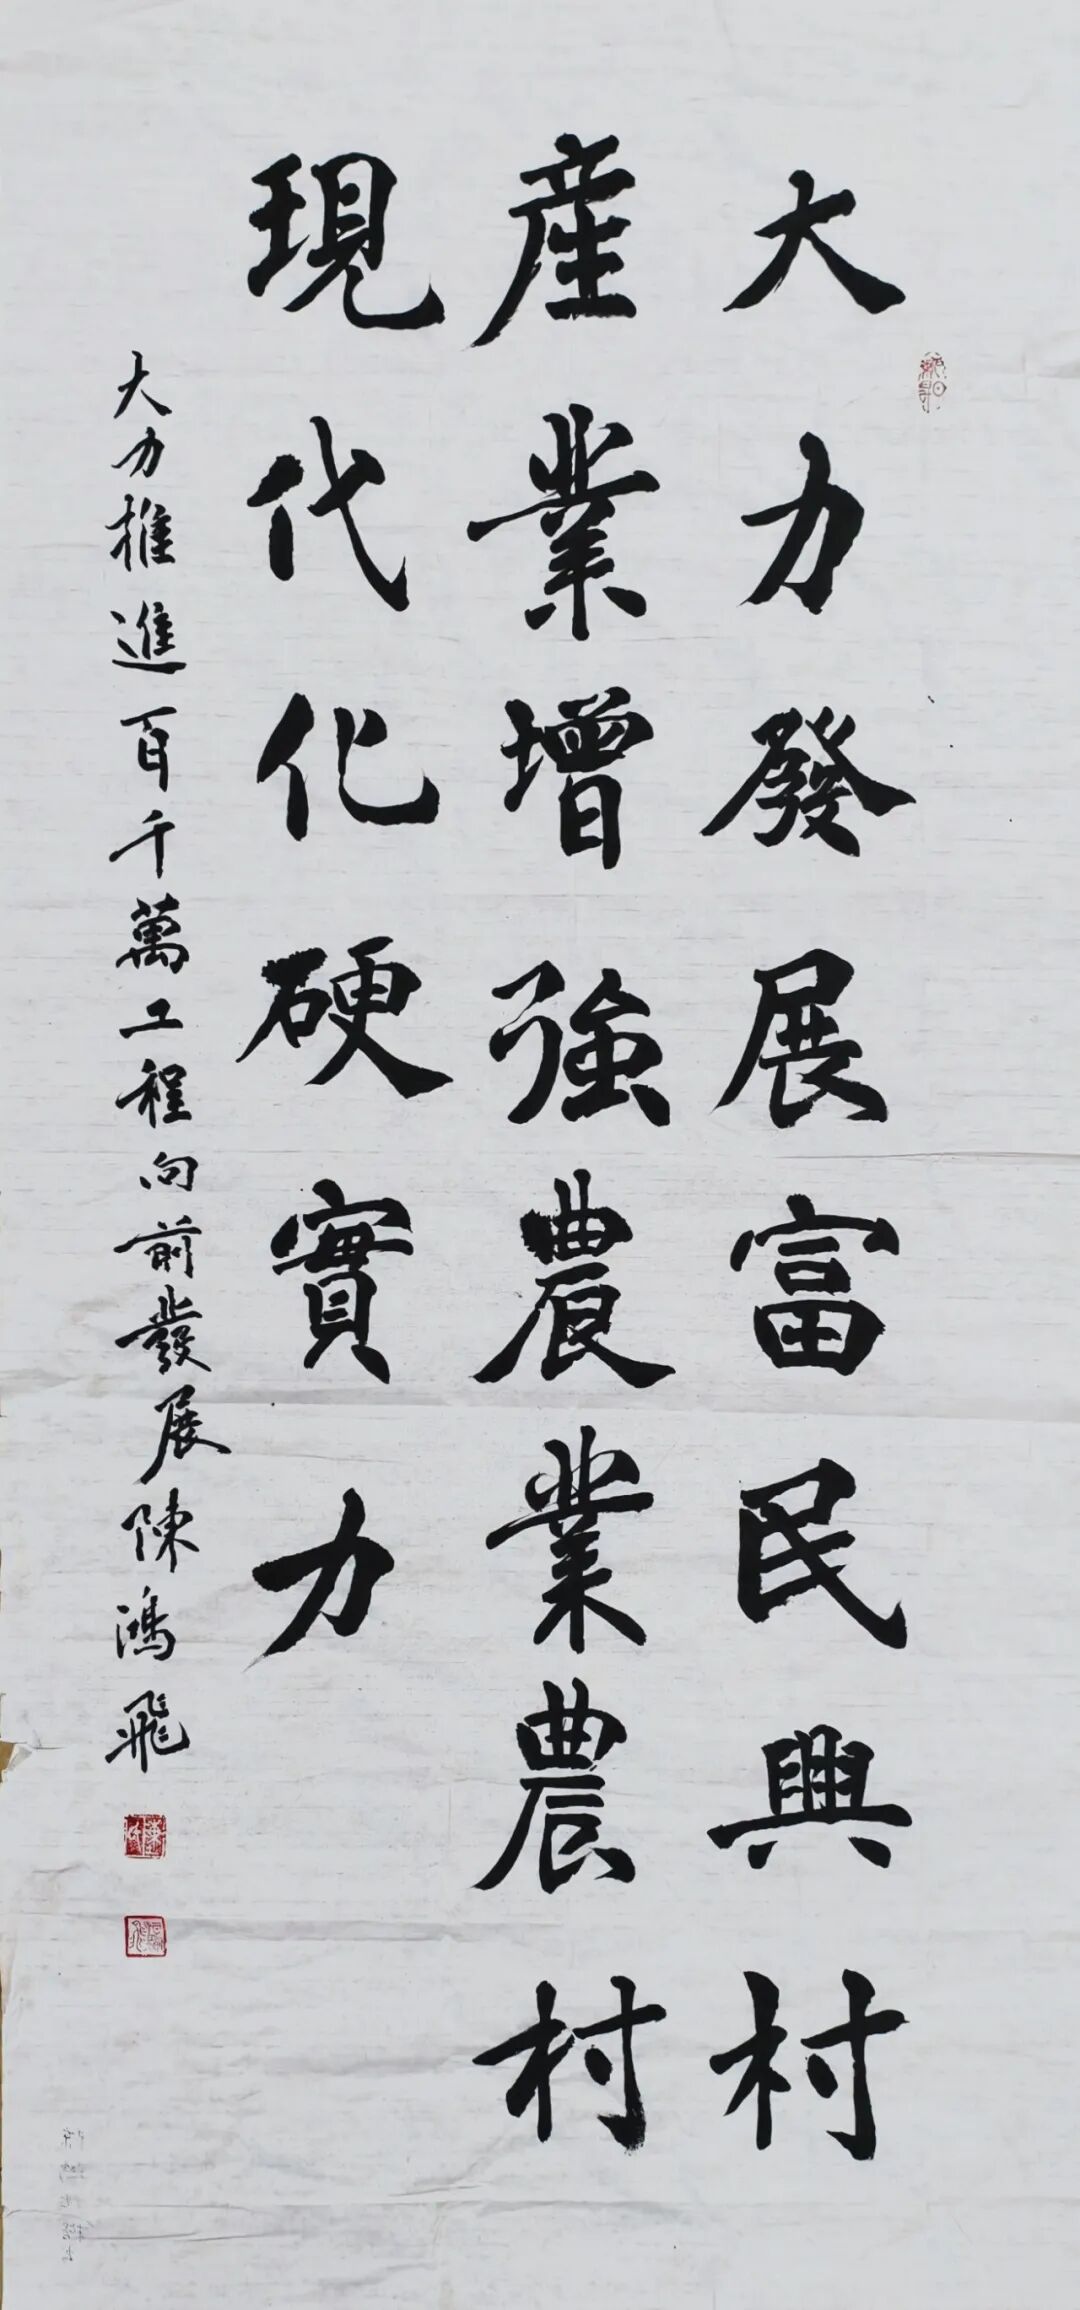 大力發展富民興村
産業增強農業農村
現代化硬實力
大力推進百千萬工程向前發展陳鴻飛